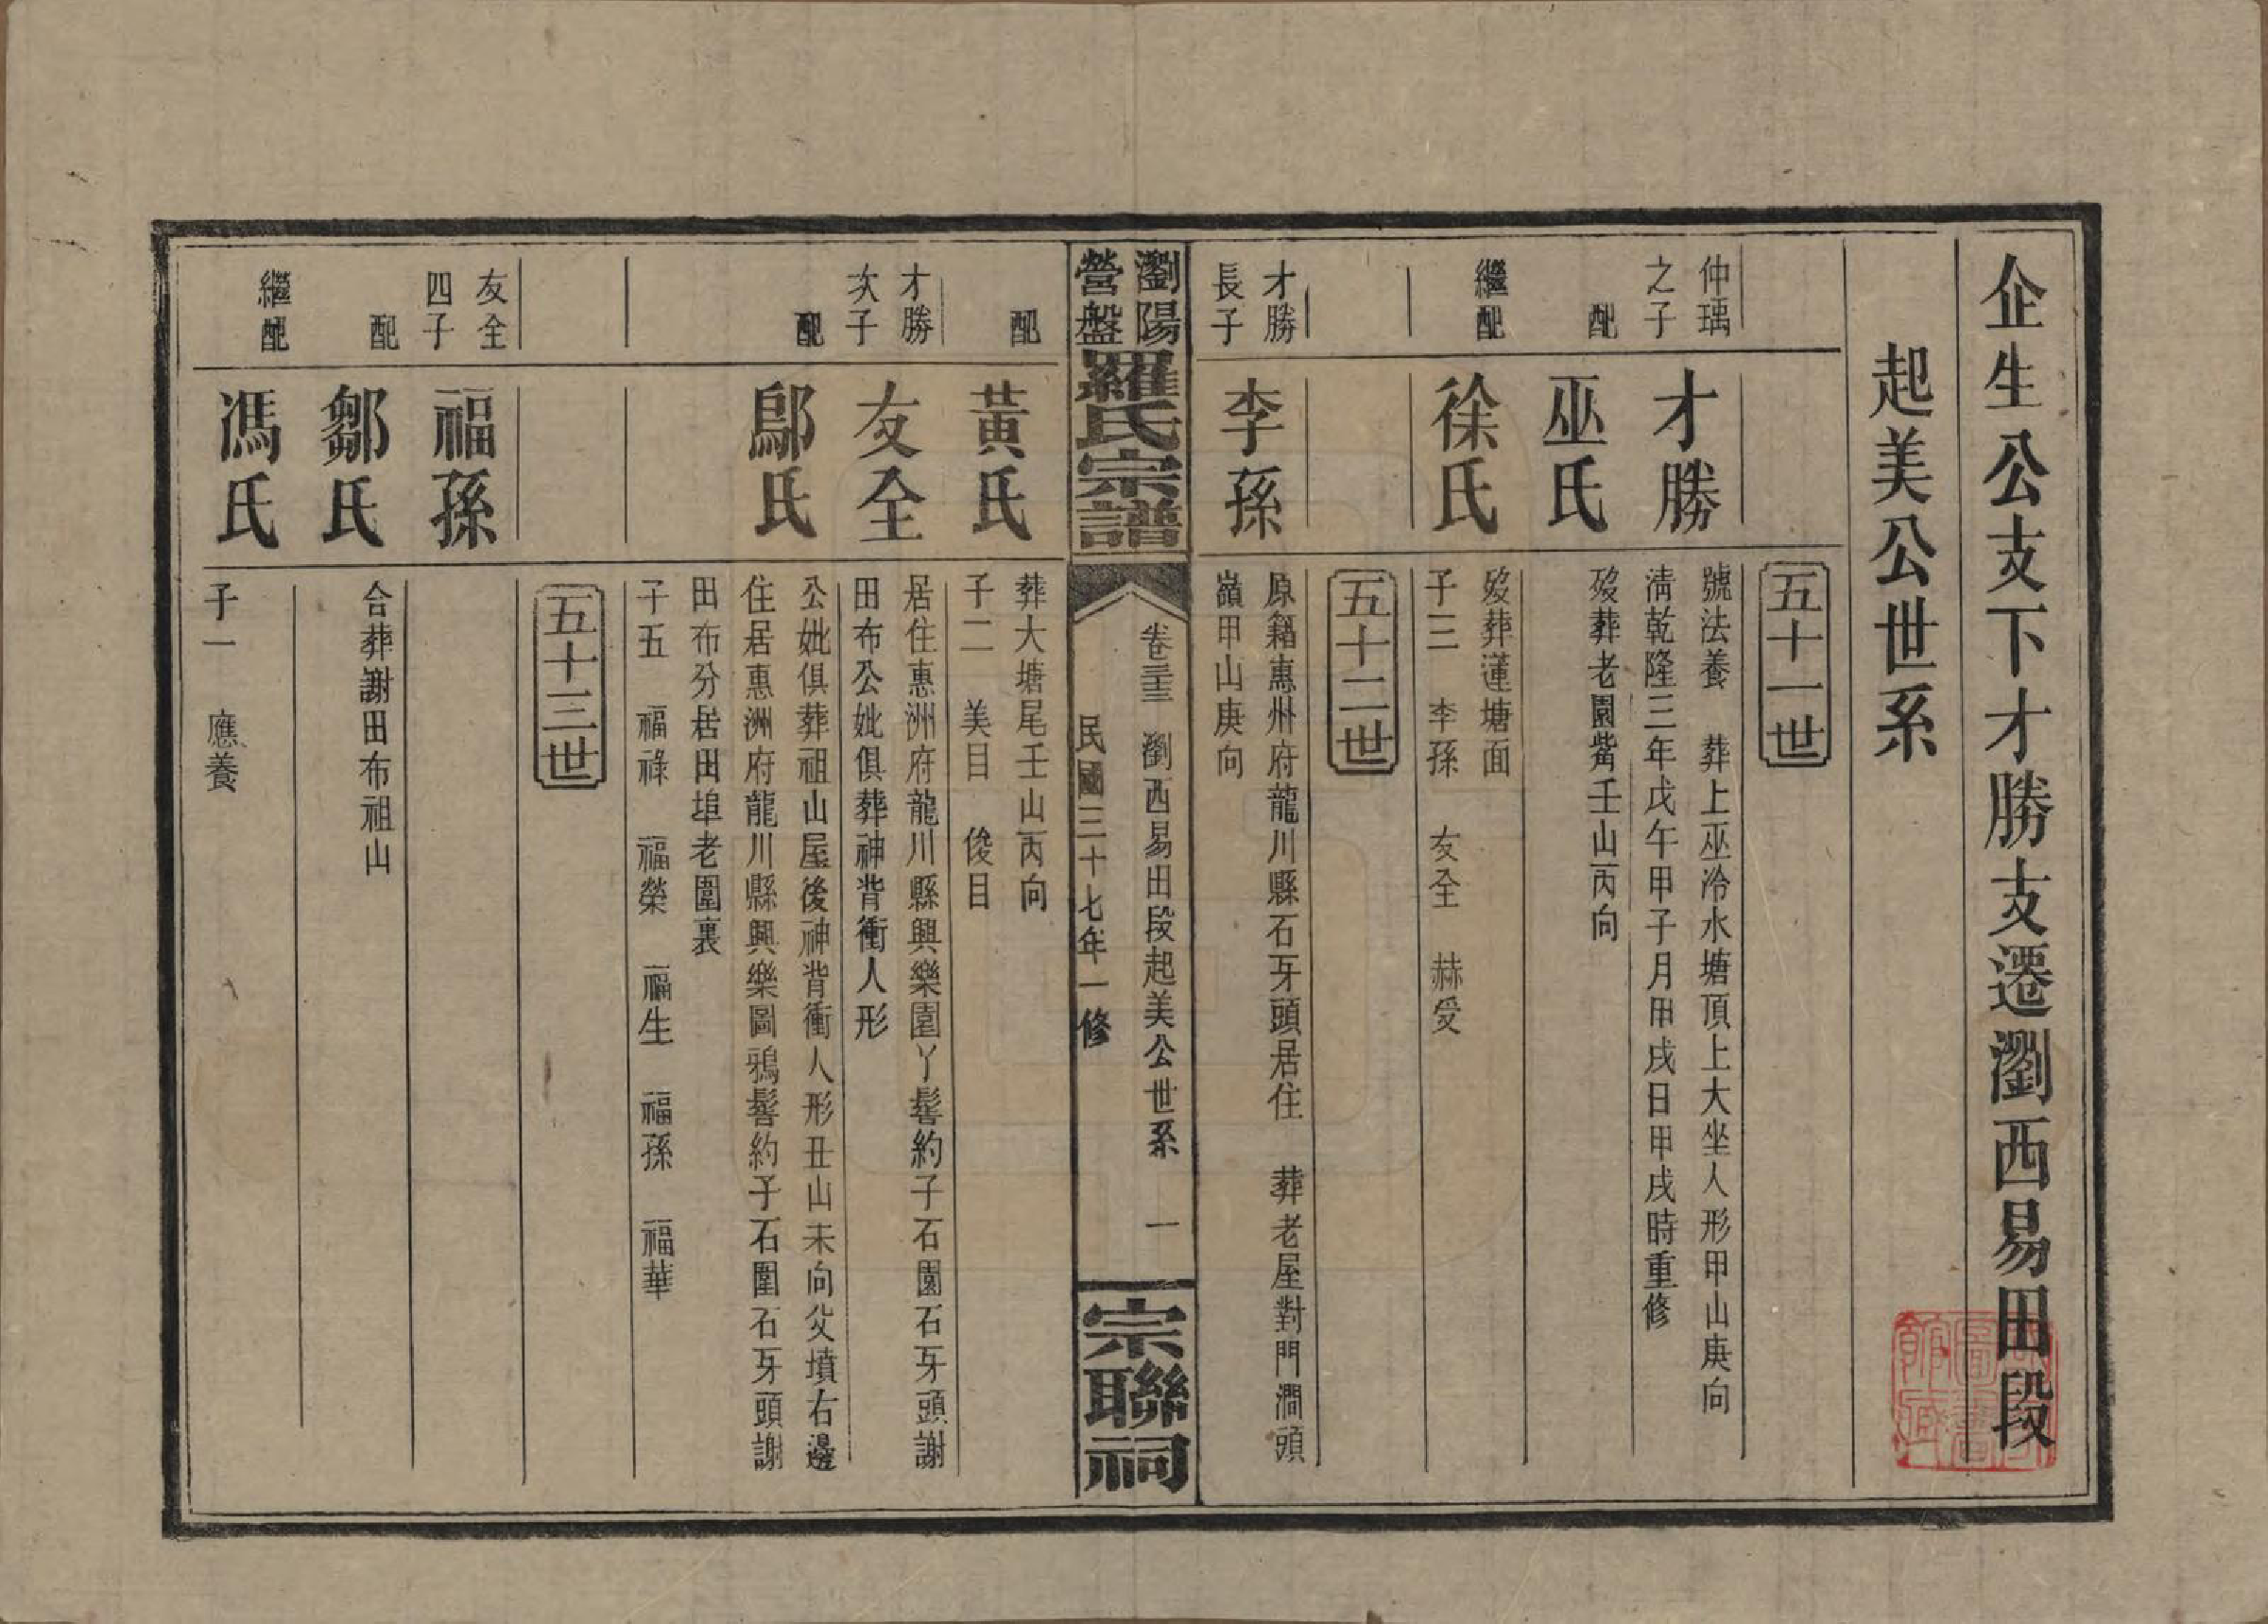 企生公支下才勝支遷瀏西易田段
起美公世系
五十一世
仲瑀
之子
才勝
號法養 葬上巫冷水塘頂上大坐人形甲山庚向
淸乾隆三年戊午甲子月甲戌日甲戌時重修
配
巫氏
歿葬老園觜壬山丙向
繼配
徐氏
歿葬蓮塘面
子三 李孫 友全 赫受
五十二世
才勝
長子
李孫
原籍惠州府龍川縣石牙頭居住 葬老屋對門澗頭
嶺甲山庚向
瀏陽
營盤
羅氏宗譜
卷三十三 瀏西易田段起美公世系 一
民國三十七年一修
宗聯祠
配
黃氏
葬大塘尾壬山丙向
子二 美目 俊目
才勝
次子
友全
居住惠洲府龍川縣興樂園丫髻約子石園石牙頭謝
田布公妣俱葬神背衝人形
配
鄔氏
公妣俱葬祖山屋後神背衝人形丑山未向父墳右邊
住居惠洲府龍川縣興樂圖鴉髻約子石圍石牙頭謝
田布分居田埠老圍裏
子五 福祿 福榮 福生 福孫 福華
五十三世
友全
四子
福孫
配
鄒氏
合葬謝田布祖山
繼配
馮氏
子一 應養